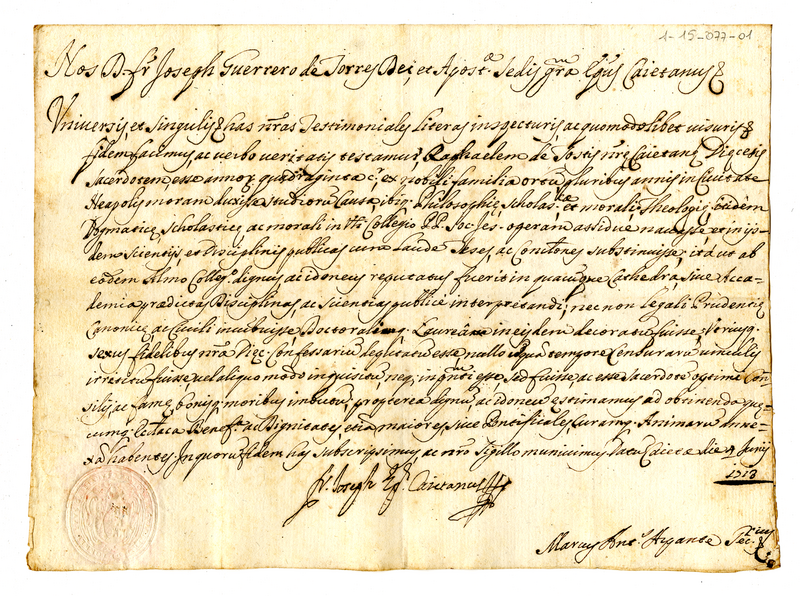 1-15-077-01
Nos D. fr Joseph Guerrero de Torres Dei, et Apost.ce Sedis grã Epus Caietanus &
Universis et Singulis & has nr̃as Testimoniales Literas inspecturis ac quomodolibet visuris &
fidem facimus, ac verbo veritatis testamur, Raphaelem de nr̃e Caietanę Dięcesis
Sacerdotem esse annor quadraginta ex nobili familia ortũ pluribus annis in Civitate
Neapolis moram duxisse studiorũ Causa, ibiq. Philosophię, Scholas.cę et morali Theologię,
Dogmaticę, Scholasticę, ac morali in Collegio PP. Soc. Jes. operam assidue navasse, et in ijs-
dem Scientijs, et Disciplinis publicas cum laude Teses, ac substinuisse, ita ut ab
eodem Almo Colleg.o dignus, ac idoneus reputatus fuerit in quacũque Cathedra, sive Acca-
demia prædictas Disciplinas, ac Scientias publicè interpretandi, nec non Legali Prudentię
Canonicę, ac Civili incubuisse, Laureã in eisdem decoratũ fuisse, Vtriusq.
sexus fidelibus nr̃a Diẹc. Confessariũ esse, nullo tempore Censurarũ vinculis
irretitũ fuisse, vel aliquo modo inquisitũ, neq. esse, sed fuisse, ac esse Sacerdotẽ optimę Con-
silij, ac famę, bonisq. moribus imbutũ, propterea dignũ, ac idoneũ estimamus ad obtinenda quę-
cumq. Benef.a, ac Dignitates etiã maiores, sive Pontificales, Curamq. Animarũ anne-
xã habentes. In quorũ fidem has subscripsimus, ac nr̃o Sigillo munivimus. Datũ Caietæ die 4 Junij
1713
fr. Joseph Ep.s Caietanus
Marcus Ant.s Secr.ius